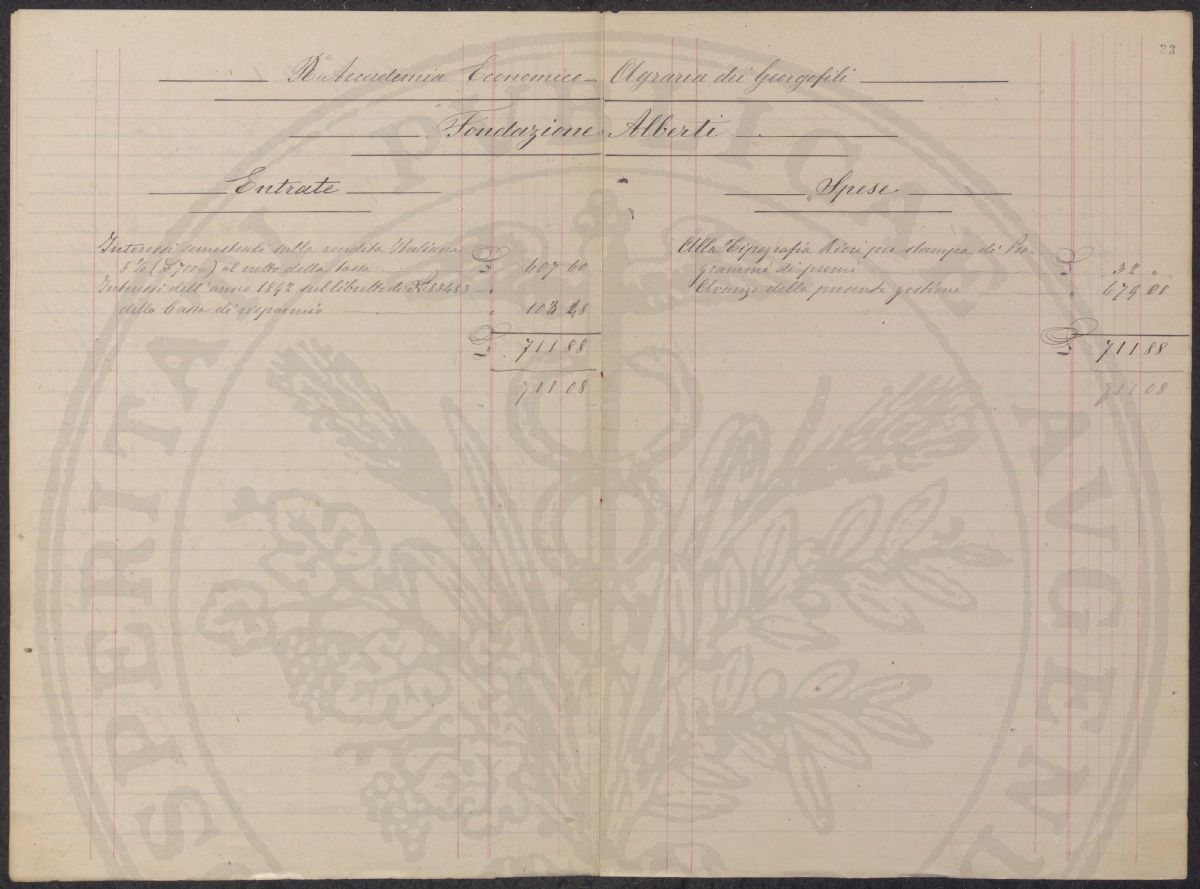 23
Rª Accademia Economico Agraria dei Georgofili
Fondazione Alberti
Entrate
Interessi semestrali sulla rendita Italiana
5 % (£ 700 –) al netto della tassa £ 607 60
Interessi dell'anno 1892 sul libretto di
della Cassa di risparmio " 103 28
£ 711 88
711 08
Spese
Alla Tipografia Ricci per stampa di Pro-
grammi di premi £ 32 "
Avanzo della presente gestione " 679 08
£ 711 88
711 08
PERITATI PUBLICAE AVGEND